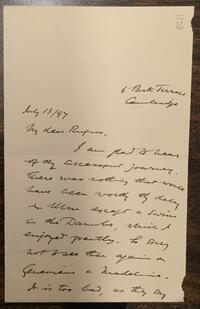 1130
6 Park Terrace
Cambridge
July 13/97
My dear Rufus,
I am glad to hear
of thy successful journey.
There was nothing that would
have been worth thy delay
in Ulm except a swim
in the Danube, which I
enjoyed greatly. So sorry
not to see thee again or
Genevieve or Madeleine.
It is too bad, as they say